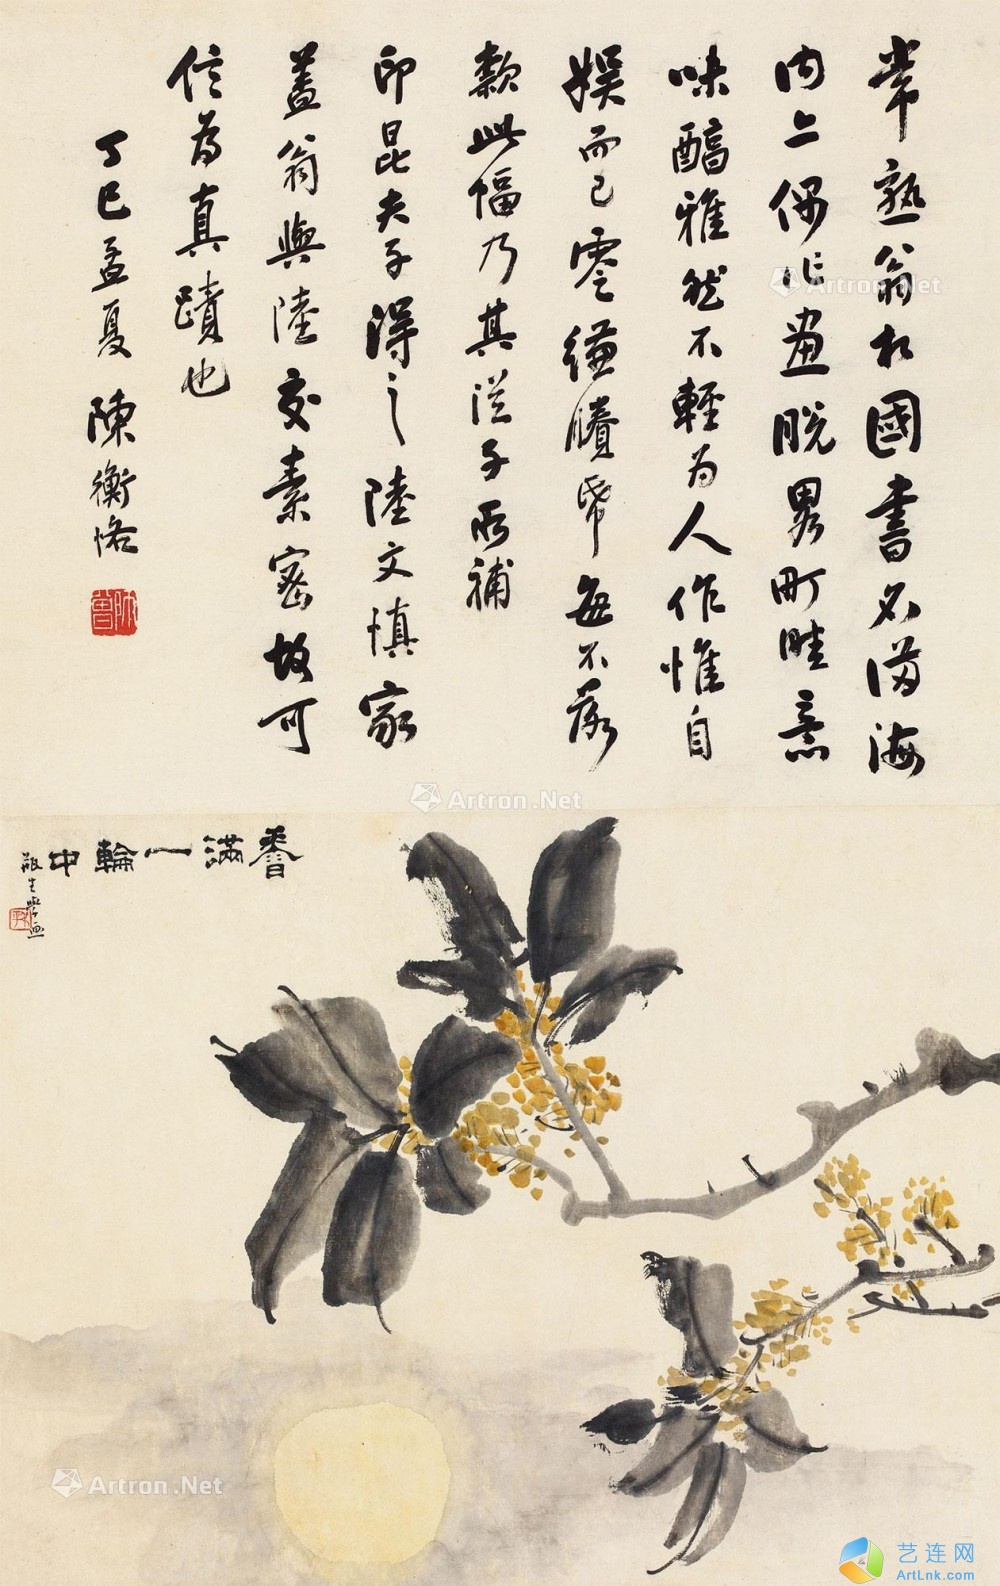 常熟翁相國書名滿海
内亦偶作畫脱畧町畦意
味醕雅然不輕为人作惟自
娱而已零缣賸帋每不落
款此幅乃其從子所補
印昆夫子得之陸文慎家
盖翁與陸交素密故可
信为真蹟也
丁巳孟夏 陳衡恪
香滿一輪中
瓶生學画
Artron.Net
Artron.Net
Artron.Net
艺连网
ArtLnk.com